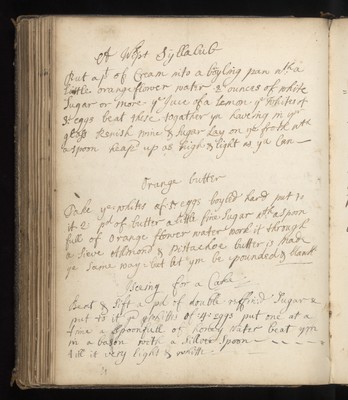 A Whipt Syllabub
Put a pt of Cream into a boyling pan wth a
little orangeflower water 2 ounces of white
Sugar or more ye Juce of a Lemon ye Whites of
3 eggs beat these together yn haveing in yr
glass Renish wine & Sugar Lay on ye froth wth
a spoon heap'd up as high & light as ye Can
Orange butter
Take ye whites of eggs boyl'd hard put to
it pd of butter a little fine Sugar wth a spoon
full of Orange flower water work it through
a Sieve Allmond & Pistachoe butter is made
ye Same way: but let ym be pounded & blanch'd
Iseing for a Cake
Beat & Sift a pd of double refined Sugar &
put to it ye whites of 4 eggs put one at a
time a Spoonfull of honey water beat ym
in a bason with a Sillver Spoon
till it very light & white